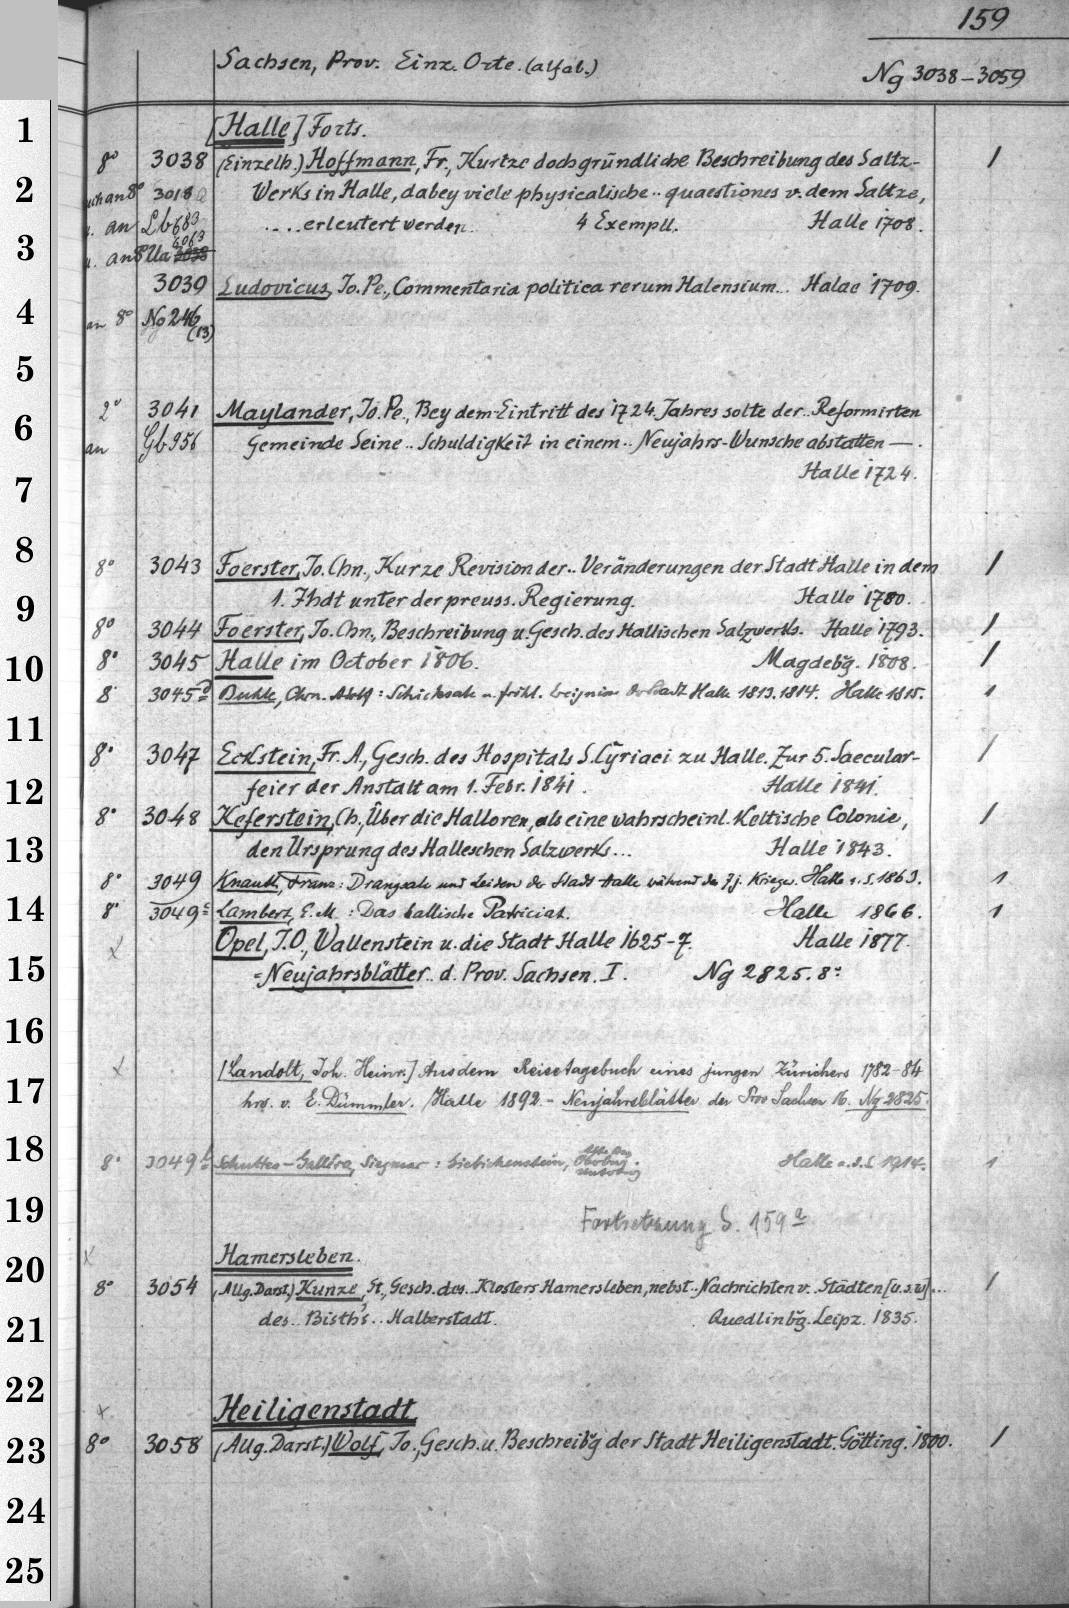 159
Sachsen, Prov. Einz. Orte. (alfab.)
Ng 3038-3059
[Halle] Forts.
8° 3038 (Einzelh.) Hoffmann, Fr., Kurtze doch gründliche Beschreibung des Saltz- 1
auch an 8° 3018 Werks in Halle, dabey viele physicalische .. quaestiones v. dem Saltze,
u. an Lb 683 ....erleutert werden. 4 Exempll. Halle 1708.
u. an 8° Ua 3038 4063
3039 Ludovicus, Jo. Pe., Commentaria politica rerum Halensium... Halae 1709.
an 8° Ng 246
(13)
2° 3041 Maylander, Jo. Pe., Bey dem Eintritt des 1724. Jahres solte der .. Reformirten
an Gb 956 Gemeinde Seine .. Schuldigkeit in einem .. Neujahrs-Wunsche abstatten —.
Halle 1724.
8° 3043 Foerster, Jo. Chn., Kurze Revision der .. Veränderungen der Stadt Halle in dem 1
1. Jhdt unter der preuss. Regierung. Halle 1780.
8° 3044 Foerster, Jo. Chn., Beschreibung u. Gesch. des Hallischen Salzwerks. Halle 1793. 1
8° 3045 Halle im October 1806. Magdebg. 1808. 1
8° 3045 a Buhle, Chrn. Adolf: Schicksale u. Ereignisse der Stadt Halle 1813. 1814. Halle 1815. 1
8° 3047 Eckstein, Fr. A., Gesch. des Hospitals S. Cyriaci zu Halle. Zur 5. Saecular- 1
feier der Anstalt am 1. Febr. 1841. Halle 1841.
8° 3048 Keferstein, Ch., Über die Halloren, als eine wahrscheinl. Keltische Colonie, 1
den Ursprung des Halleschen Salzwerks... Halle 1843.
8° 3049 Knauth, Franz: Drangsale und Leiden der Stadt Halle während des 7j. Krieges. Halle a. S. 1863. 1
8° 3049 c Lambert, E. M.: Das hallische Patriciat. Halle 1866. 1
X Opel, J. O., Wallenstein u. die Stadt Halle 1625-7. Halle 1877.
= Neujahrsblätter .. d. Prov. Sachsen. I. Ng 2825. 8°
X [Landolt, Joh. Heinr.] Aus dem Reisetagebuch eines jungen Zürichers 1782-84
hrs. v. E. Dümmler. Halle 1892. - Neujahrsblätter der Prov Sachsen 16. Ng 2825.
8° 3049 Schultze-Gallera, Siegmar: Giebichenstein, Halle a. d. S. 1914. 1
Fortsetzung S. 159 a
X Hamersleben.
8° 3054 (Allg. Darst.) Kunze, St., Gesch. des .. Klosters Hamersleben, nebst .. Nachrichten v. Städten [u.s.w] ... 1
des .. Bisth's .. Halberstadt. Quedlinbg. Leipz. 1835.
X Heiligenstadt
8° 3058 (Allg. Darst.) Wolf, Jo., Gesch. u. Beschreibg der Stadt Heiligenstadt. Götting. 1800. 1
1
2
3
4
5
6
7
8
9
10
11
12
13
14
15
16
17
18
19
20
21
22
23
24
25